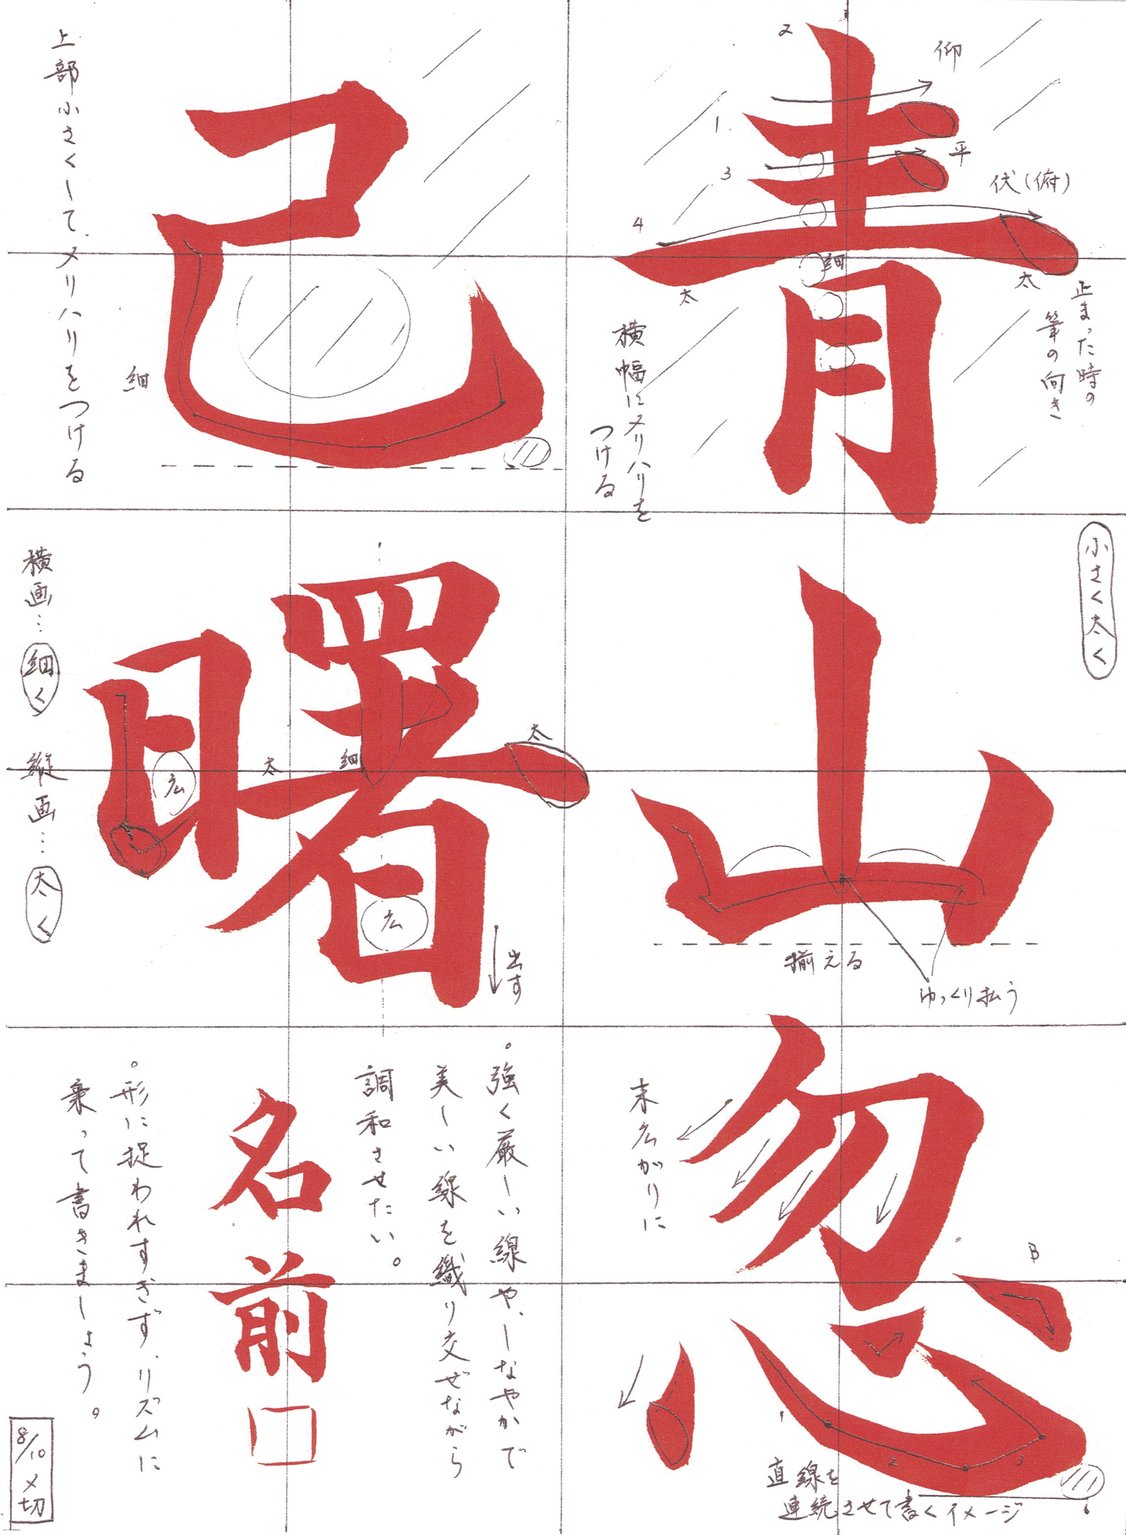 青
山
忽
己
曙
名前
2
1
3
4
仰
平
伏(俯)
太
細
太
止まった時の
筆の向き
横幅にメリハリを
つける
小さく太く
揃える
ゆっくり払う
末広がりに
B
1
2
3
直線を
連続させて書くイメージ
上部小さくして、メリハリをつける
細
横画…細く 縦画…太く
広
太
細
太
広
出す
。強く厳しい線や、しなやかで
美しい線を織り交ぜながら
調和させたい。
。形に捉われすぎず、リズムに
乗って書きましょう。
8/10〆切